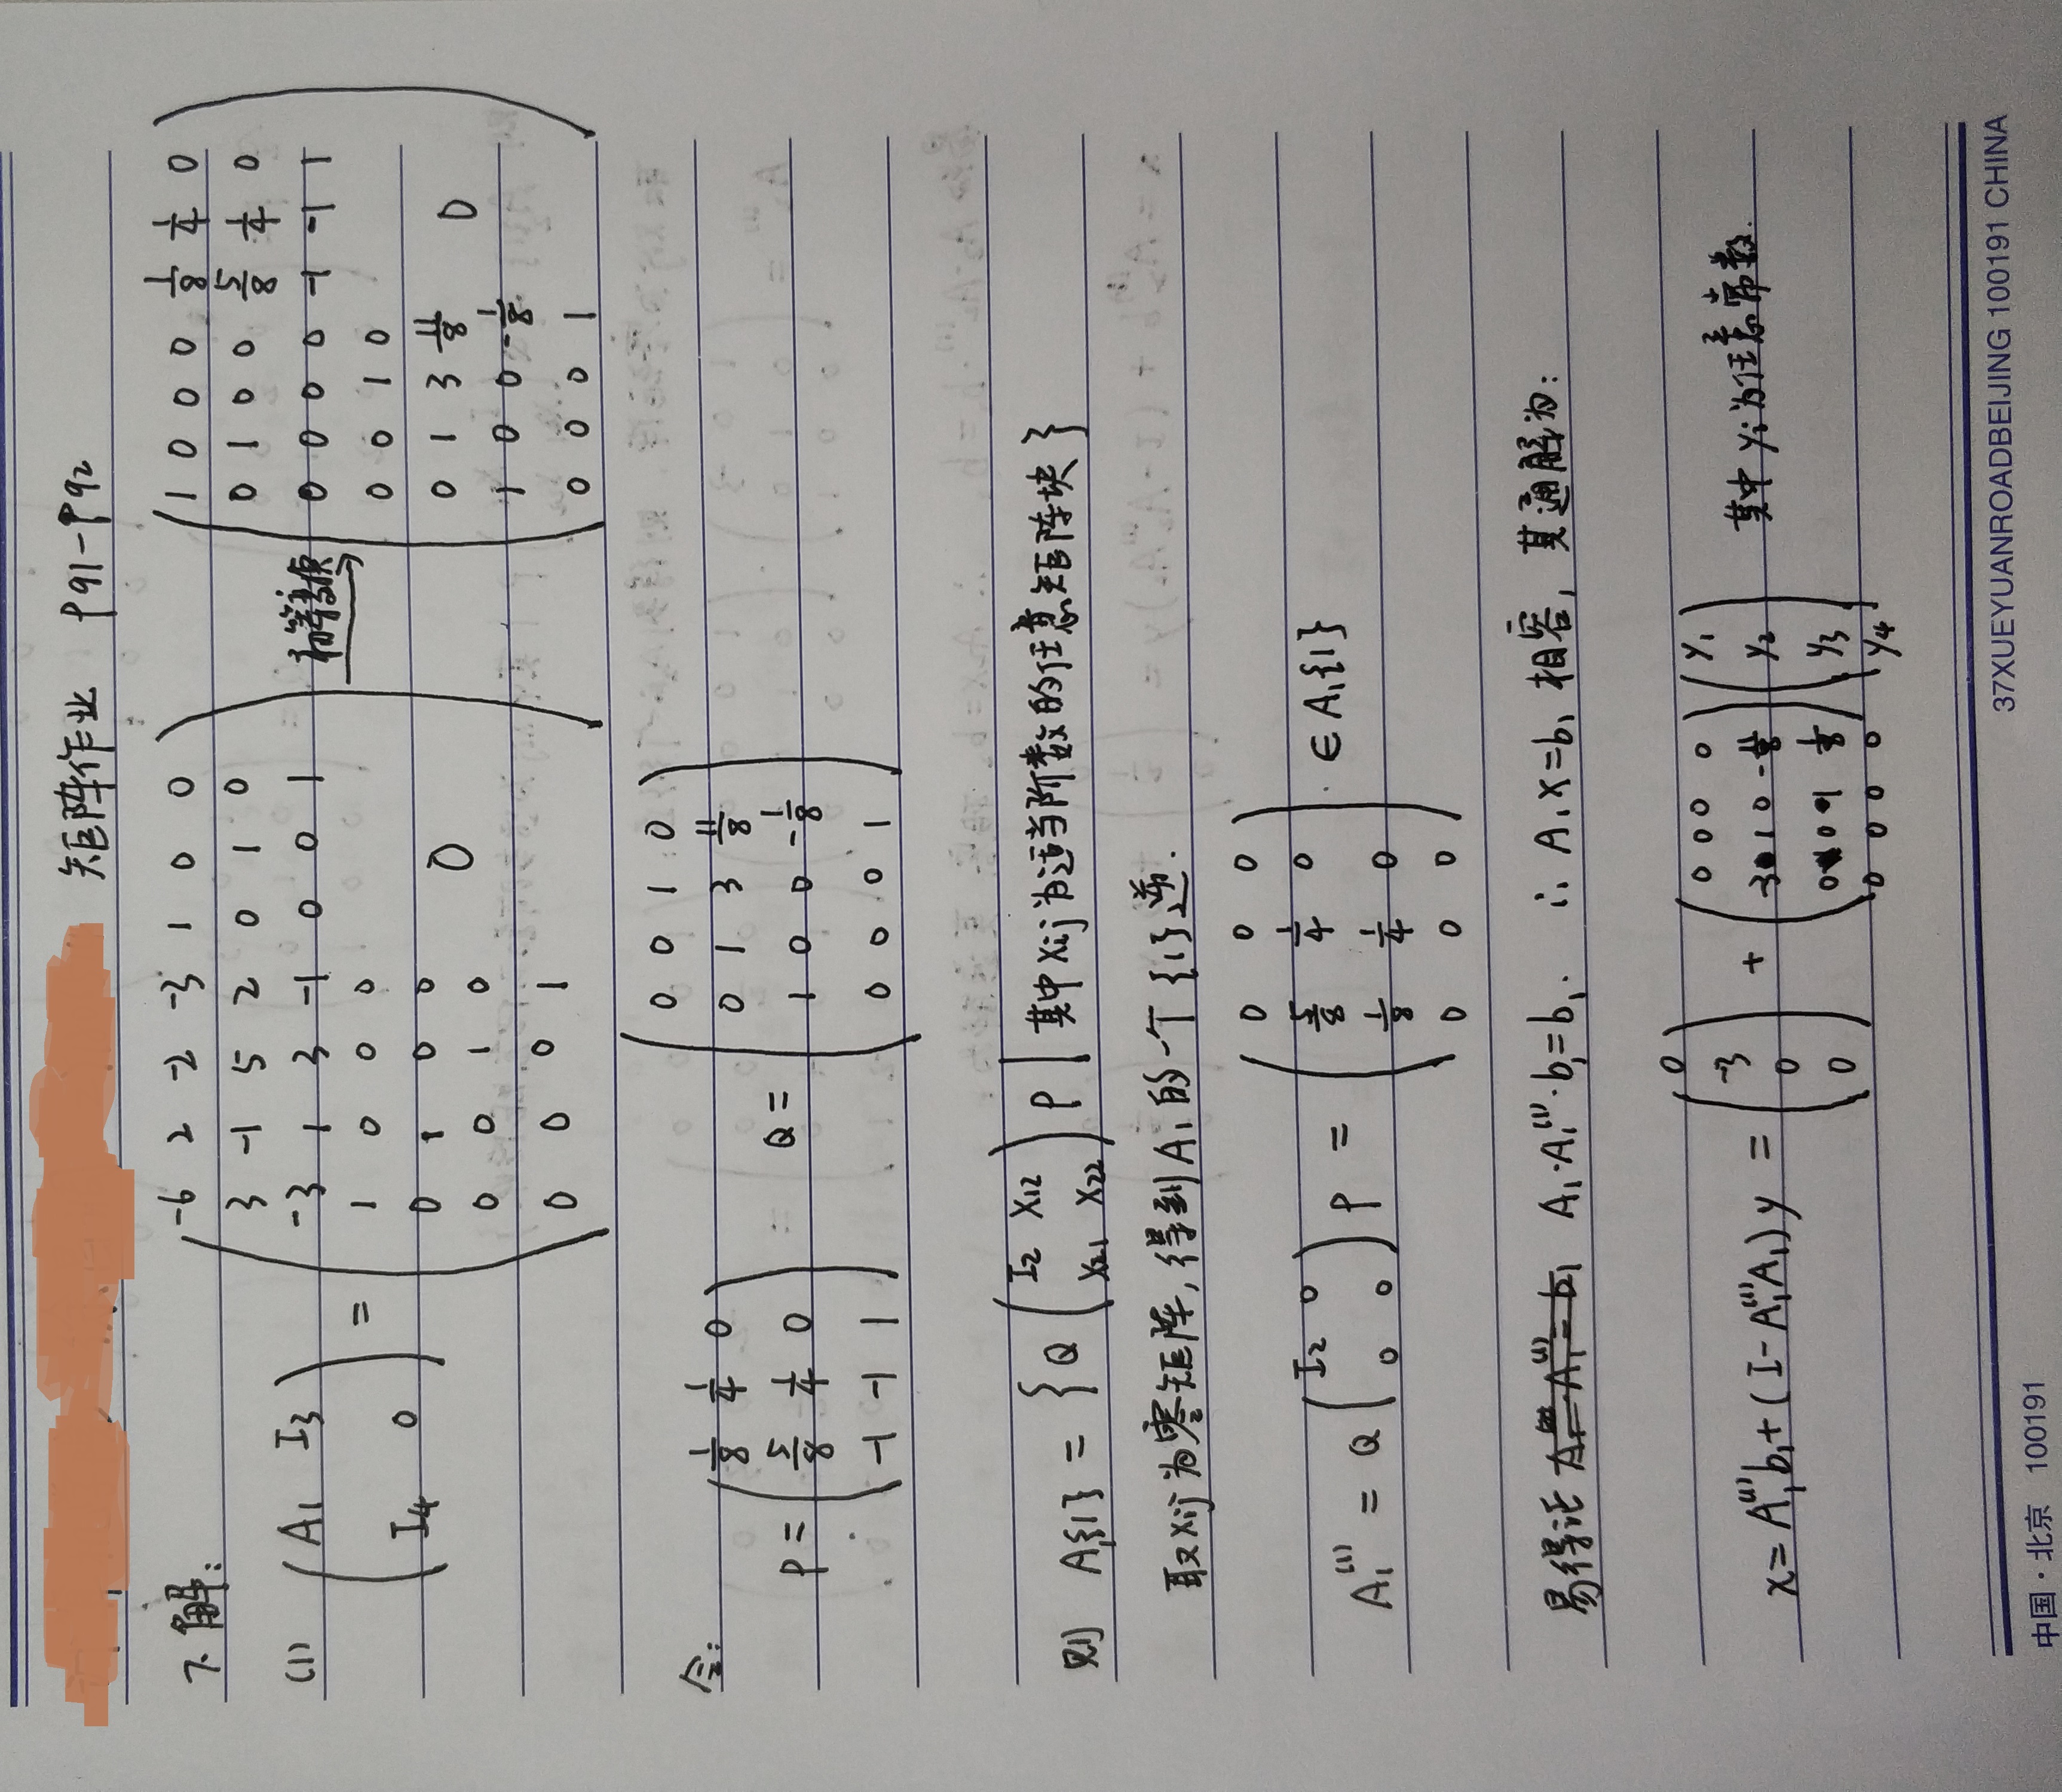 矩阵作业 P91-P92
7.解:
(1) (A₁ I₃; I₄ 0) = (-6 2 -2 -3 1 0 0; 3 -1 5 2 0 1 0; -3 1 3 -1 0 0 1; 1 0 0 0; 0 1 0 0; 0 0 1 0; 0 0 0 1 0) 初等变换→ (1 0 0 0 1/8 1/4 0; 0 1 0 0 5/8 1/4 0; 0 0 0 0 -1 -1 1; 0 0 1 0; 0 1 3 11/8 0; 1 0 0 -1/8; 0 0 0 1)
令: P = (1/8 1/4 0; 5/8 1/4 0; -1 -1 1) Q = (0 0 1 0; 0 1 3 11/8; 1 0 0 -1/8; 0 0 0 1)
则 A₁{1} = {Q (I₂ X₁₂; X₂₁ X₂₂) P | 其中Xij为适当阶数的任意矩阵块}
取Xij为零矩阵, 得到A₁的一个{1}逆.
A₁⁽¹⁾ = Q (I₂ 0; 0 0) P = (0 0 0; 5/8 1/4 0; 1/8 1/4 0; 0 0 0) ∈ A₁{1}
易得证 A₁·A₁⁽¹⁾·b₁=b₁. ∴ A₁x=b₁相容, 其通解为:
x=A₁⁽¹⁾b₁+(I-A₁⁽¹⁾A₁)y = (0; -3; 0; 0) + (0 0 0 0; 3 1 0 -11/8; 0 0 1/8; 0 0 0 0)(y₁; y₂; y₃; y₄) 其中yi为任意常数.
中国·北京 100191 37XUEYUANROADBEIJING 100191 CHINA